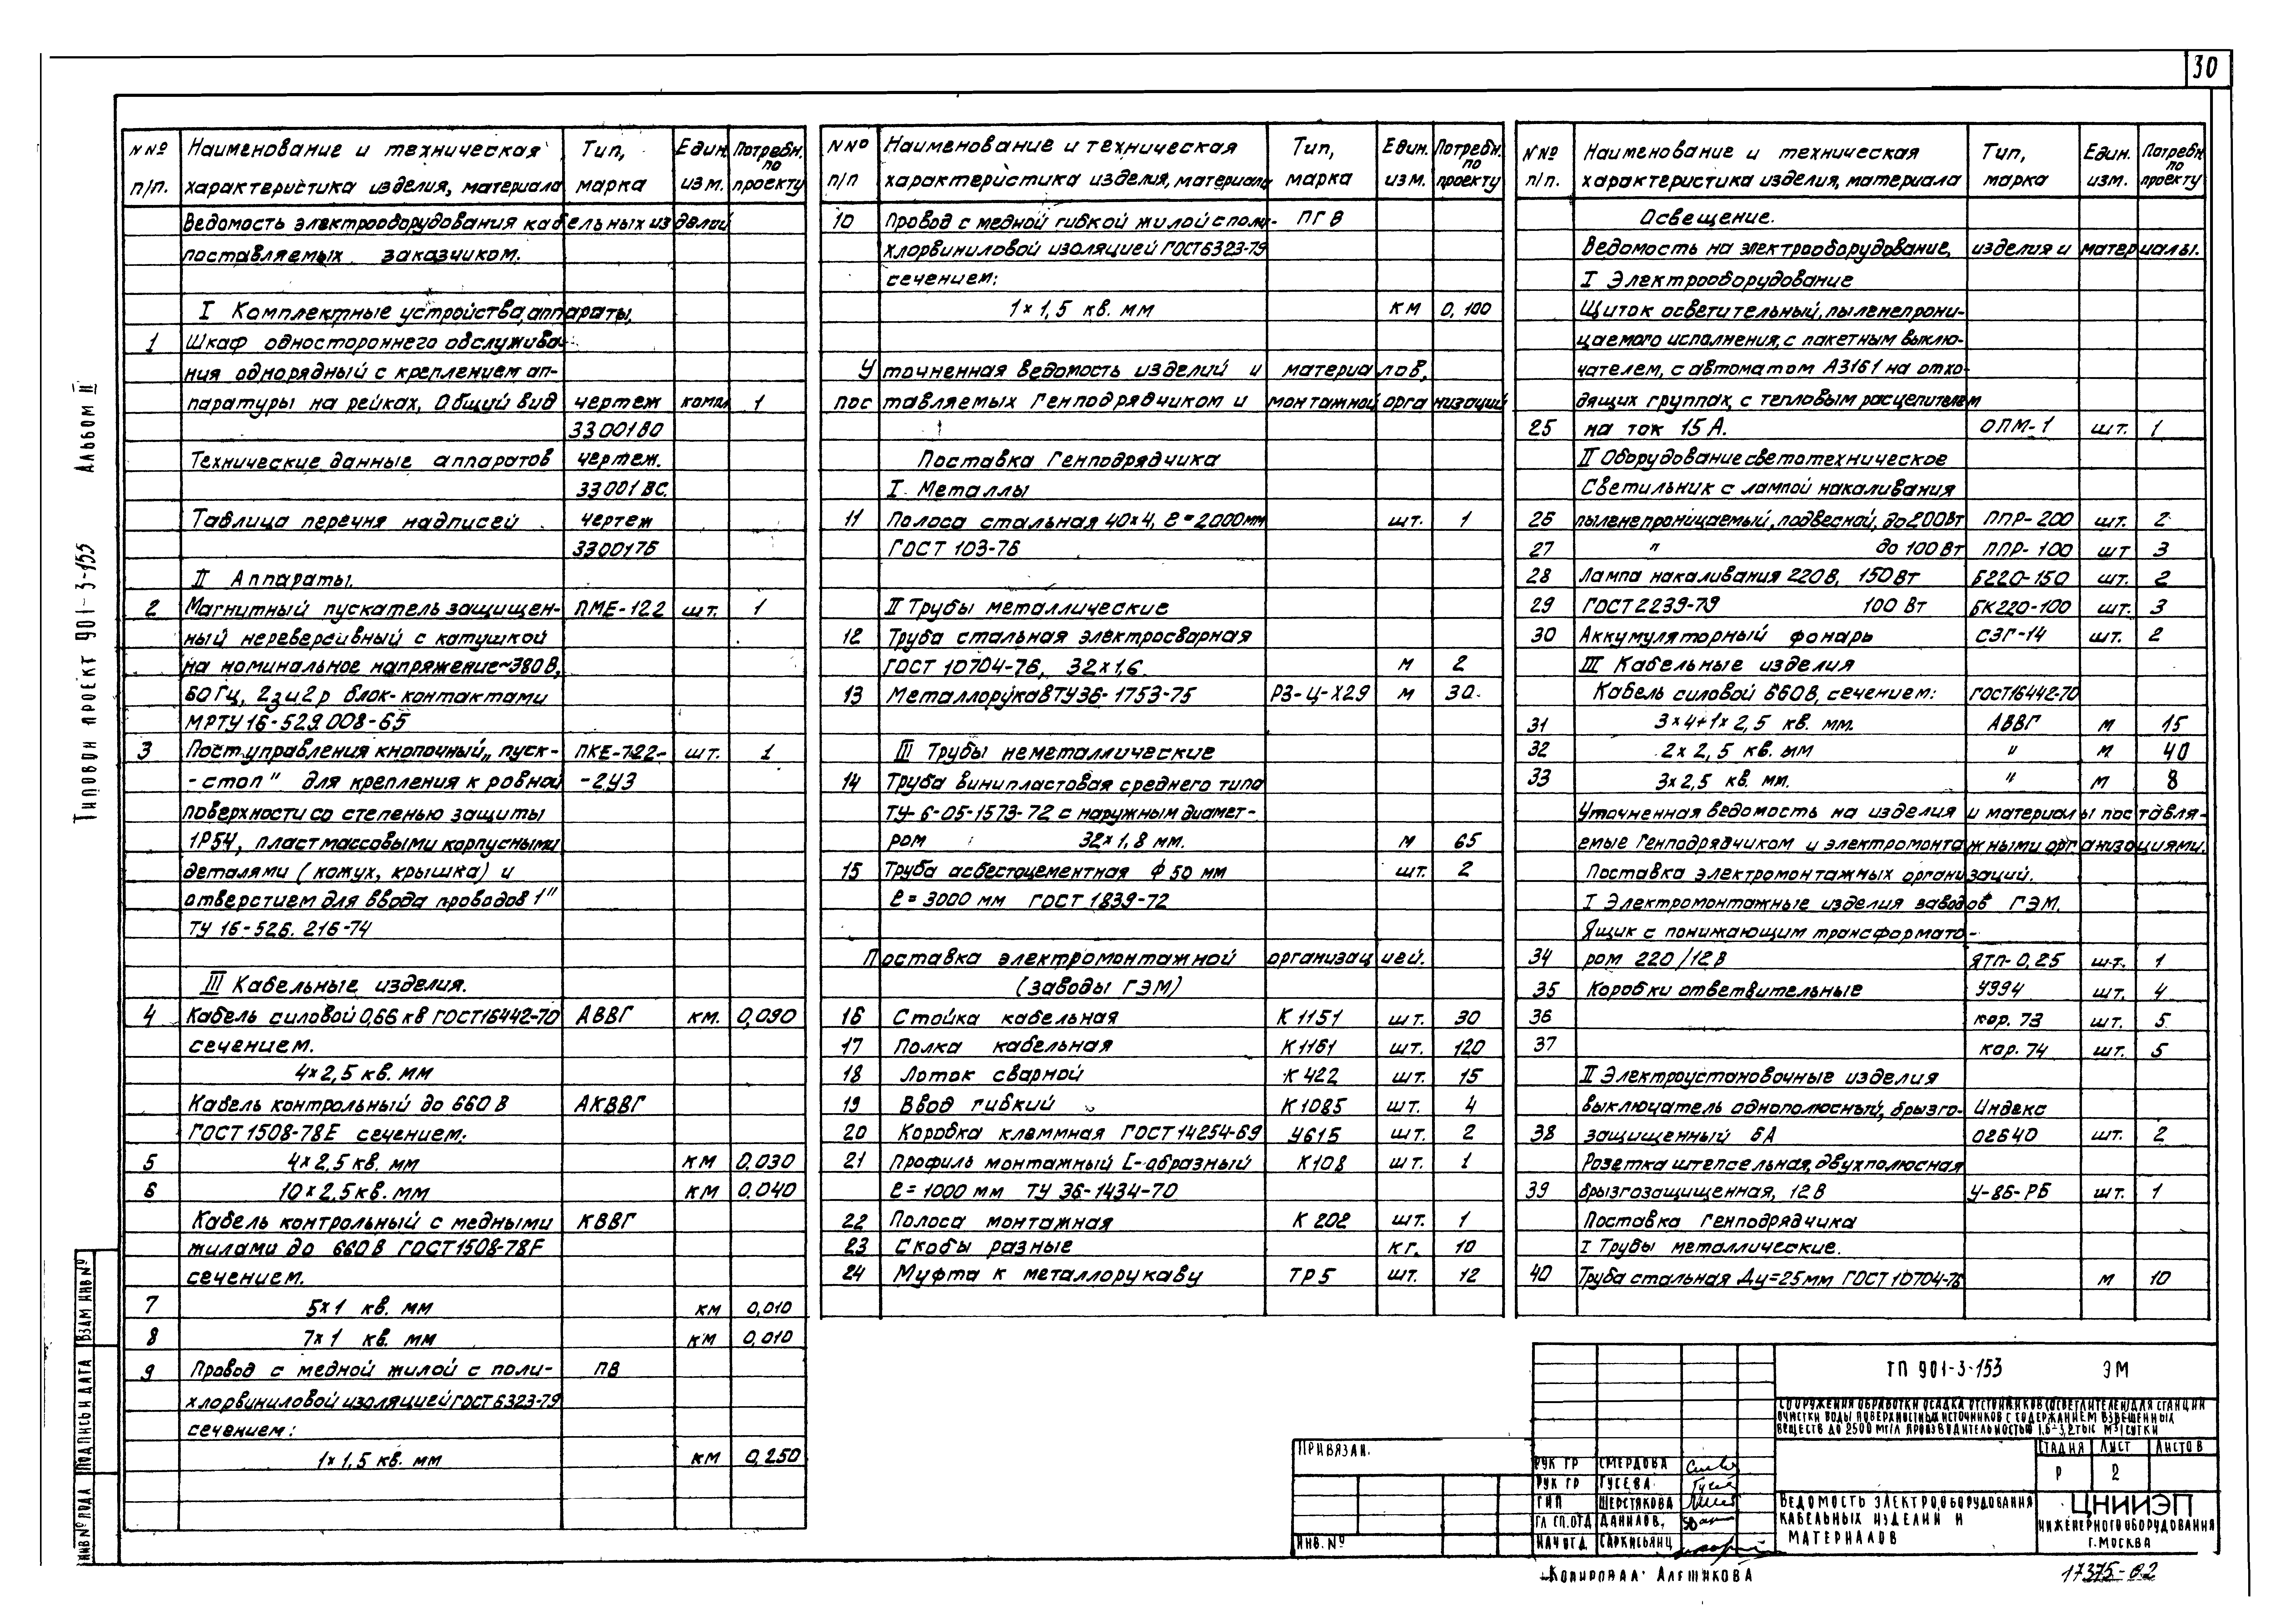 30
Типовой проект 901-3-153 Альбом II
NNº Наименование и техническая Тип, Един. Потребн. по
п/п. характеристика изделия, материала марка изм. проекту
Ведомость электрооборудования кабельных изделий
поставляемых заказчиком.
I Комплектные устройства, аппараты,
1 Шкаф одностороннего обслужива-
ния однорядный с креплением ап-
паратуры на рейках, Общий вид чертеж компл 1
3300180
Технические данные аппаратов чертеж.
33001ВС.
Таблица перечня надписей чертеж
33001ТБ
II Аппараты.
2 Магнитный пускатель защищен- ПМЕ-122 шт. 1
ный нереверсивный с катушкой
на номинальное напряжение ~380В,
50 Гц, 2з и 2р блок-контактами
МРТУ 16-529.008-65
3 Пост управления кнопочный „пуск- ПКЕ-722- шт. 1
-стоп" для крепления к ровной -2У3
поверхности со степенью защиты
1Р54, пластмассовыми корпусными
деталями (кожух, крышка) и
отверстием для ввода проводов 1"
ТУ 16-526. 216-74
III Кабельные изделия.
4 Кабель силовой 0,66 кв ГОСТ 16442-70 АВВГ км. 0,090
сечением.
4×2,5 кв. мм
Кабель контрольный до 660 В АКВВГ
ГОСТ 1508-78Е сечением.
5 4×2,5 кв. мм км 0,030
6 10×2,5 кв. мм км 0,040
Кабель контрольный с медными КВВГ
жилами до 660 В ГОСТ 1508-78Е
сечением.
7 5×1 кв. мм км 0,010
8 7×1 кв. мм км 0,010
9 Провод с медной жилой с поли- ПВ
хлорвиниловой изоляцией ГОСТ 6323-79
сечением:
1×1,5 кв. мм км 0,250
NNº Наименование и техническая Тип, Един. Потребн. по
п/п характеристика изделия, материала марка изм. проекту
10 Провод с медной гибкой жилой с поли- ПГВ
хлорвиниловой изоляцией ГОСТ 6323-79
сечением:
1×1,5 кв. мм км 0,100
Уточненная ведомость изделий и материалов,
поставляемых Генподрядчиком и монтажной организаций
Поставка Генподрядчика
I. Металлы
11 Полоса стальная 40×4, ℓ=2000мм шт. 1
ГОСТ 103-76
II Трубы металлические
12 Труба стальная электросварная
ГОСТ 10704-76, 32×1,6. м 2
13 Металлорукав ТУ 36-1753-75 РЗ-Ц-Х29 м 30.
III Трубы неметаллические
14 Труба винипластовая среднего типа
ТУ-6-05-1573-72 с наружным диамет-
ром 32×1,8 мм. м 65
15 Труба асбестоцементная ϕ 50 мм шт. 2
ℓ=3000 мм ГОСТ 1839-72
Поставка электромонтажной организацией.
(заводы ГЭМ)
16 Стойка кабельная К 1151 шт. 30
17 Полка кабельная К 1161 шт. 120
18 Лоток сварной К 422 шт. 15
19 Ввод гибкий К 1085 шт. 4
20 Коробка клеммная ГОСТ 14254-69 У615 шт. 2
21 Профиль монтажный С-образный К108 шт. 1
ℓ=1000 мм ТУ 36-1434-70
22 Полоса монтажная К 202 шт. 1
23 Скобы разные кг. 10
24 Муфта к металлорукаву ТР5 шт. 12
NNº Наименование и техническая Тип, Един. Потребн по
п/п. характеристика изделия, материала марка изм. проекту
Освещение.
Ведомость на электрооборудование, изделия и материалы.
I Электрооборудование
Щиток осветительный, пыленепрони-
цаемого исполнения, с пакетным выклю-
чателем, с автоматом А3161 на отхо-
дящих группах, с тепловым расцепителем
25 на ток 15 А. ОПМ-1 шт. 1
II Оборудование светотехническое
Светильник с лампой накаливания
26 пыленепроницаемый, подвесной, до 200Вт ППР-200 шт. 2
27 " до 100 Вт ППР-100 шт 3
28 Лампа накаливания 220 В, 150 Вт Б220-150 шт. 2
29 ГОСТ 2239-79 100 Вт БК220-100 шт. 3
30 Аккумуляторный фонарь СЗГ-14 шт. 2
III Кабельные изделия
Кабель силовой 660В, сечением: ГОСТ 16442-70
31 3×4+1×2,5 кв. мм. АВВГ м 15
32 2×2,5 кв. мм " м 40
33 3×2,5 кв. мм. " м 8
Уточненная ведомость на изделия и материалы поставля-
емые Генподрядчиком и электромонтажными организациями.
Поставка электромонтажных организаций.
I Электромонтажные изделия заводов ГЭМ.
Ящик с понижающим трансформато-
34 ром 220/12 В ЯТП-0,25 шт. 1
35 Коробки ответвительные У994 шт. 4
36 кор. 73 шт. 5
37 кор. 74 шт. 5
II Электроустановочные изделия
выключатель однополюсный, брызго- Индекс
38 защищенный 6А 02640 шт. 2
Розетка штепсельная, двухполюсная
39 брызгозащищенная, 12 В У-86-РБ шт. 1
Поставка Генподрядчика
I Трубы металлические.
40 Труба стальная Ду=25мм ГОСТ 10704-76 м 10
ТП 901-3-153 ЭМ
Сооружения обработки осадка отстойников (осветлителей) для станции
очистки воды поверхностных источников с содержанием взвешенных
веществ до 2500 мг/л производительностью 1,6-3,2 тыс м³/сутки
Стадия Лист Листов
Р 2
Ведомость электрооборудования
кабельных изделий и
материалов
ЦНИИЭП
инженерного оборудования
г. Москва
Рук гр Смердова
Рук гр Гусева
ГИП Шерстякова
Гл сп.отд Данилов.
Нач отд Саркисьянц
Привязан.
Инв. Nº
Инв Nº подл Подпись и дата Взам инв Nº
Копировал: Алешикова
17375-02